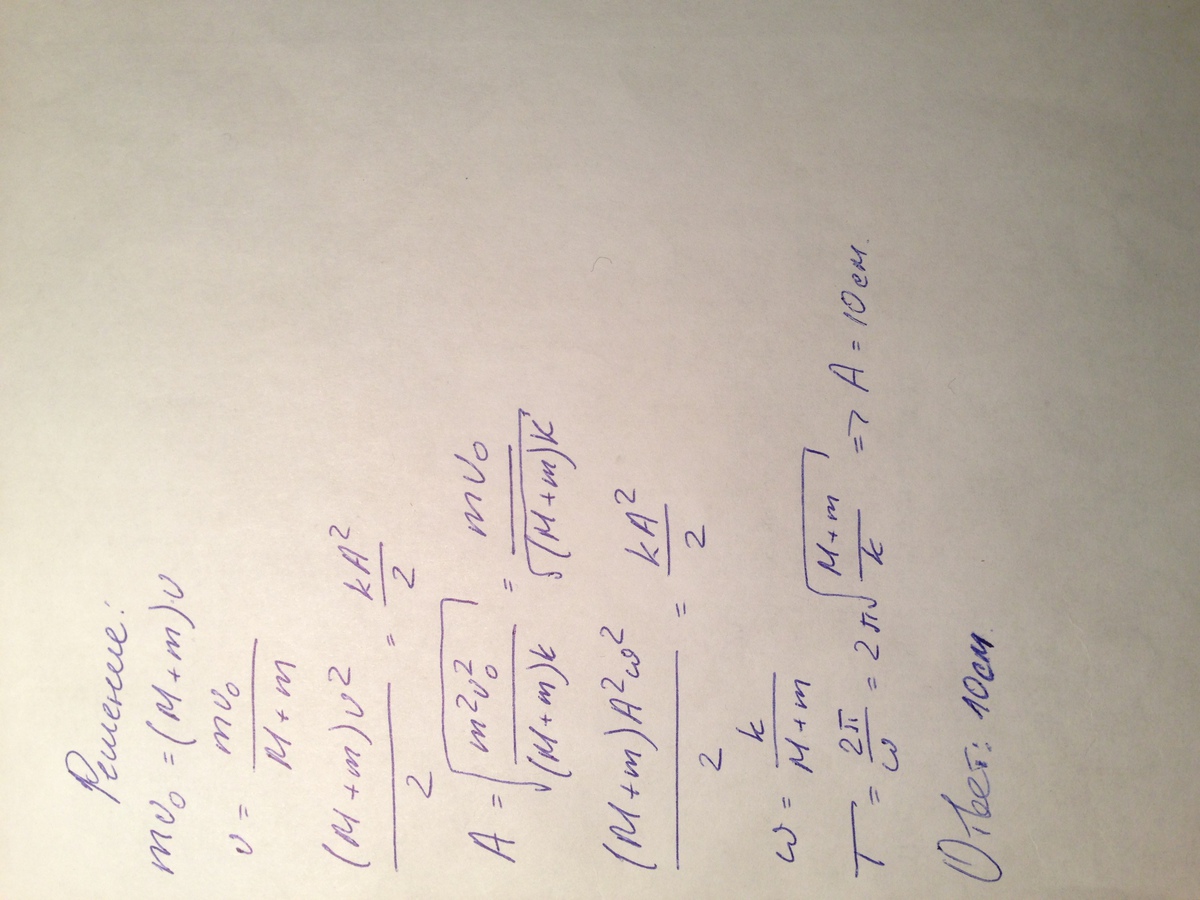 Решение:
mv₀ = (M+m)v
v = mv₀/(M+m)
(M+m)v²/2 = kA²/2
A = √(m²v₀²/((M+m)k)) = mv₀/√((M+m)k)
(M+m)A²ω²/2 = kA²/2
ω = k/(M+m)
T = 2π/ω = 2π√((M+m)/k) => A = 10см.
Ответ: 10см